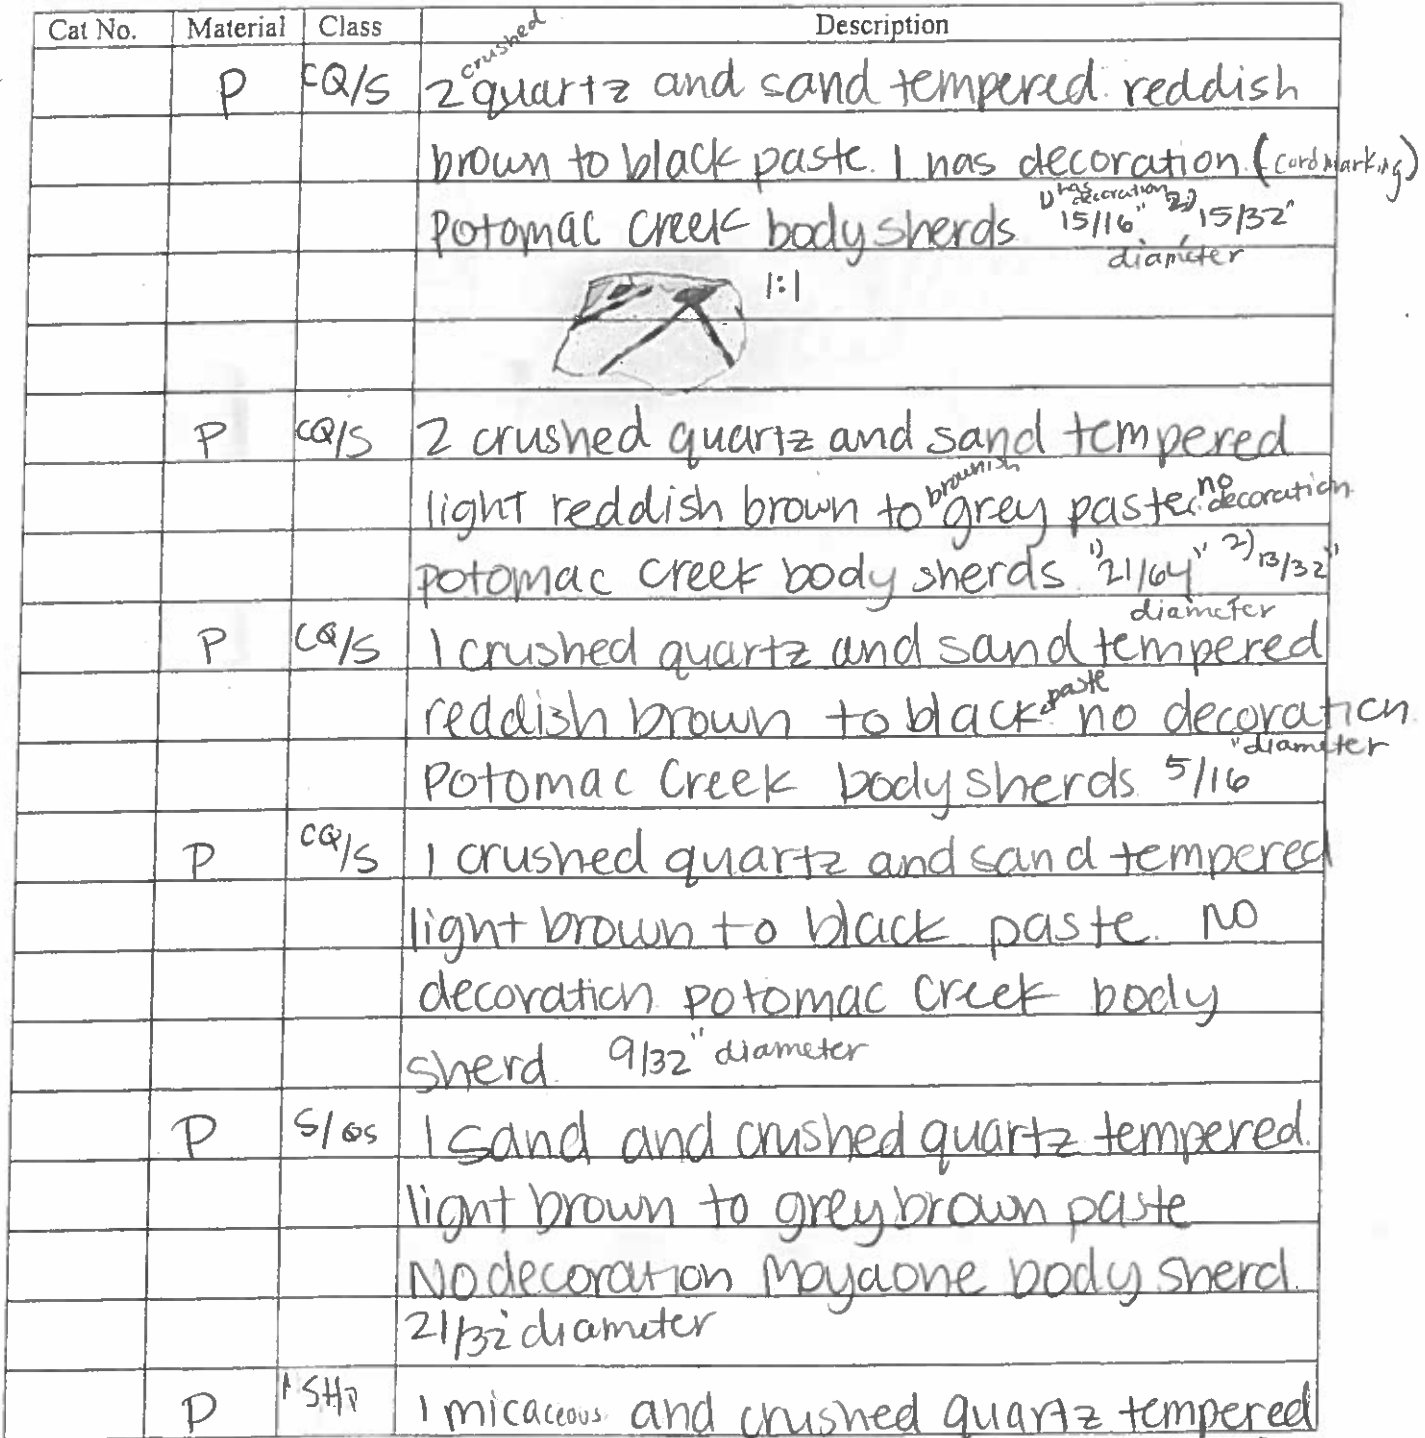 Cat No. Material Class Description
P CQ/S 2 crushed quartz and sand tempered. reddish
brown to black paste. 1 has decoration. (cord marking)
Potomac Creek body sherds 1) has decoration 15/16", 2) 15/32"
diameter
1:1
P CQ/S 2 crushed quartz and sand tempered
light reddish brown to brownish grey paste. no decoration.
potomac creek body sherds 1) 21/64" 2) 13/32"
diameter
P CQ/S 1 crushed quartz and sand tempered
reddish brown to black paste. no decoration
Potomac Creek body sherds. 5/16 "diameter
P CQ/S 1 crushed quartz and sand tempered
light brown to black paste. No
decoration potomac Creek body
sherd. 9/32" diameter
P S/ 1 sand and crushed quartz tempered.
light brown to grey brown paste
No decoration Moyaone body sherd.
21/32" diameter
P 1 micaceous and crushed quartz tempered